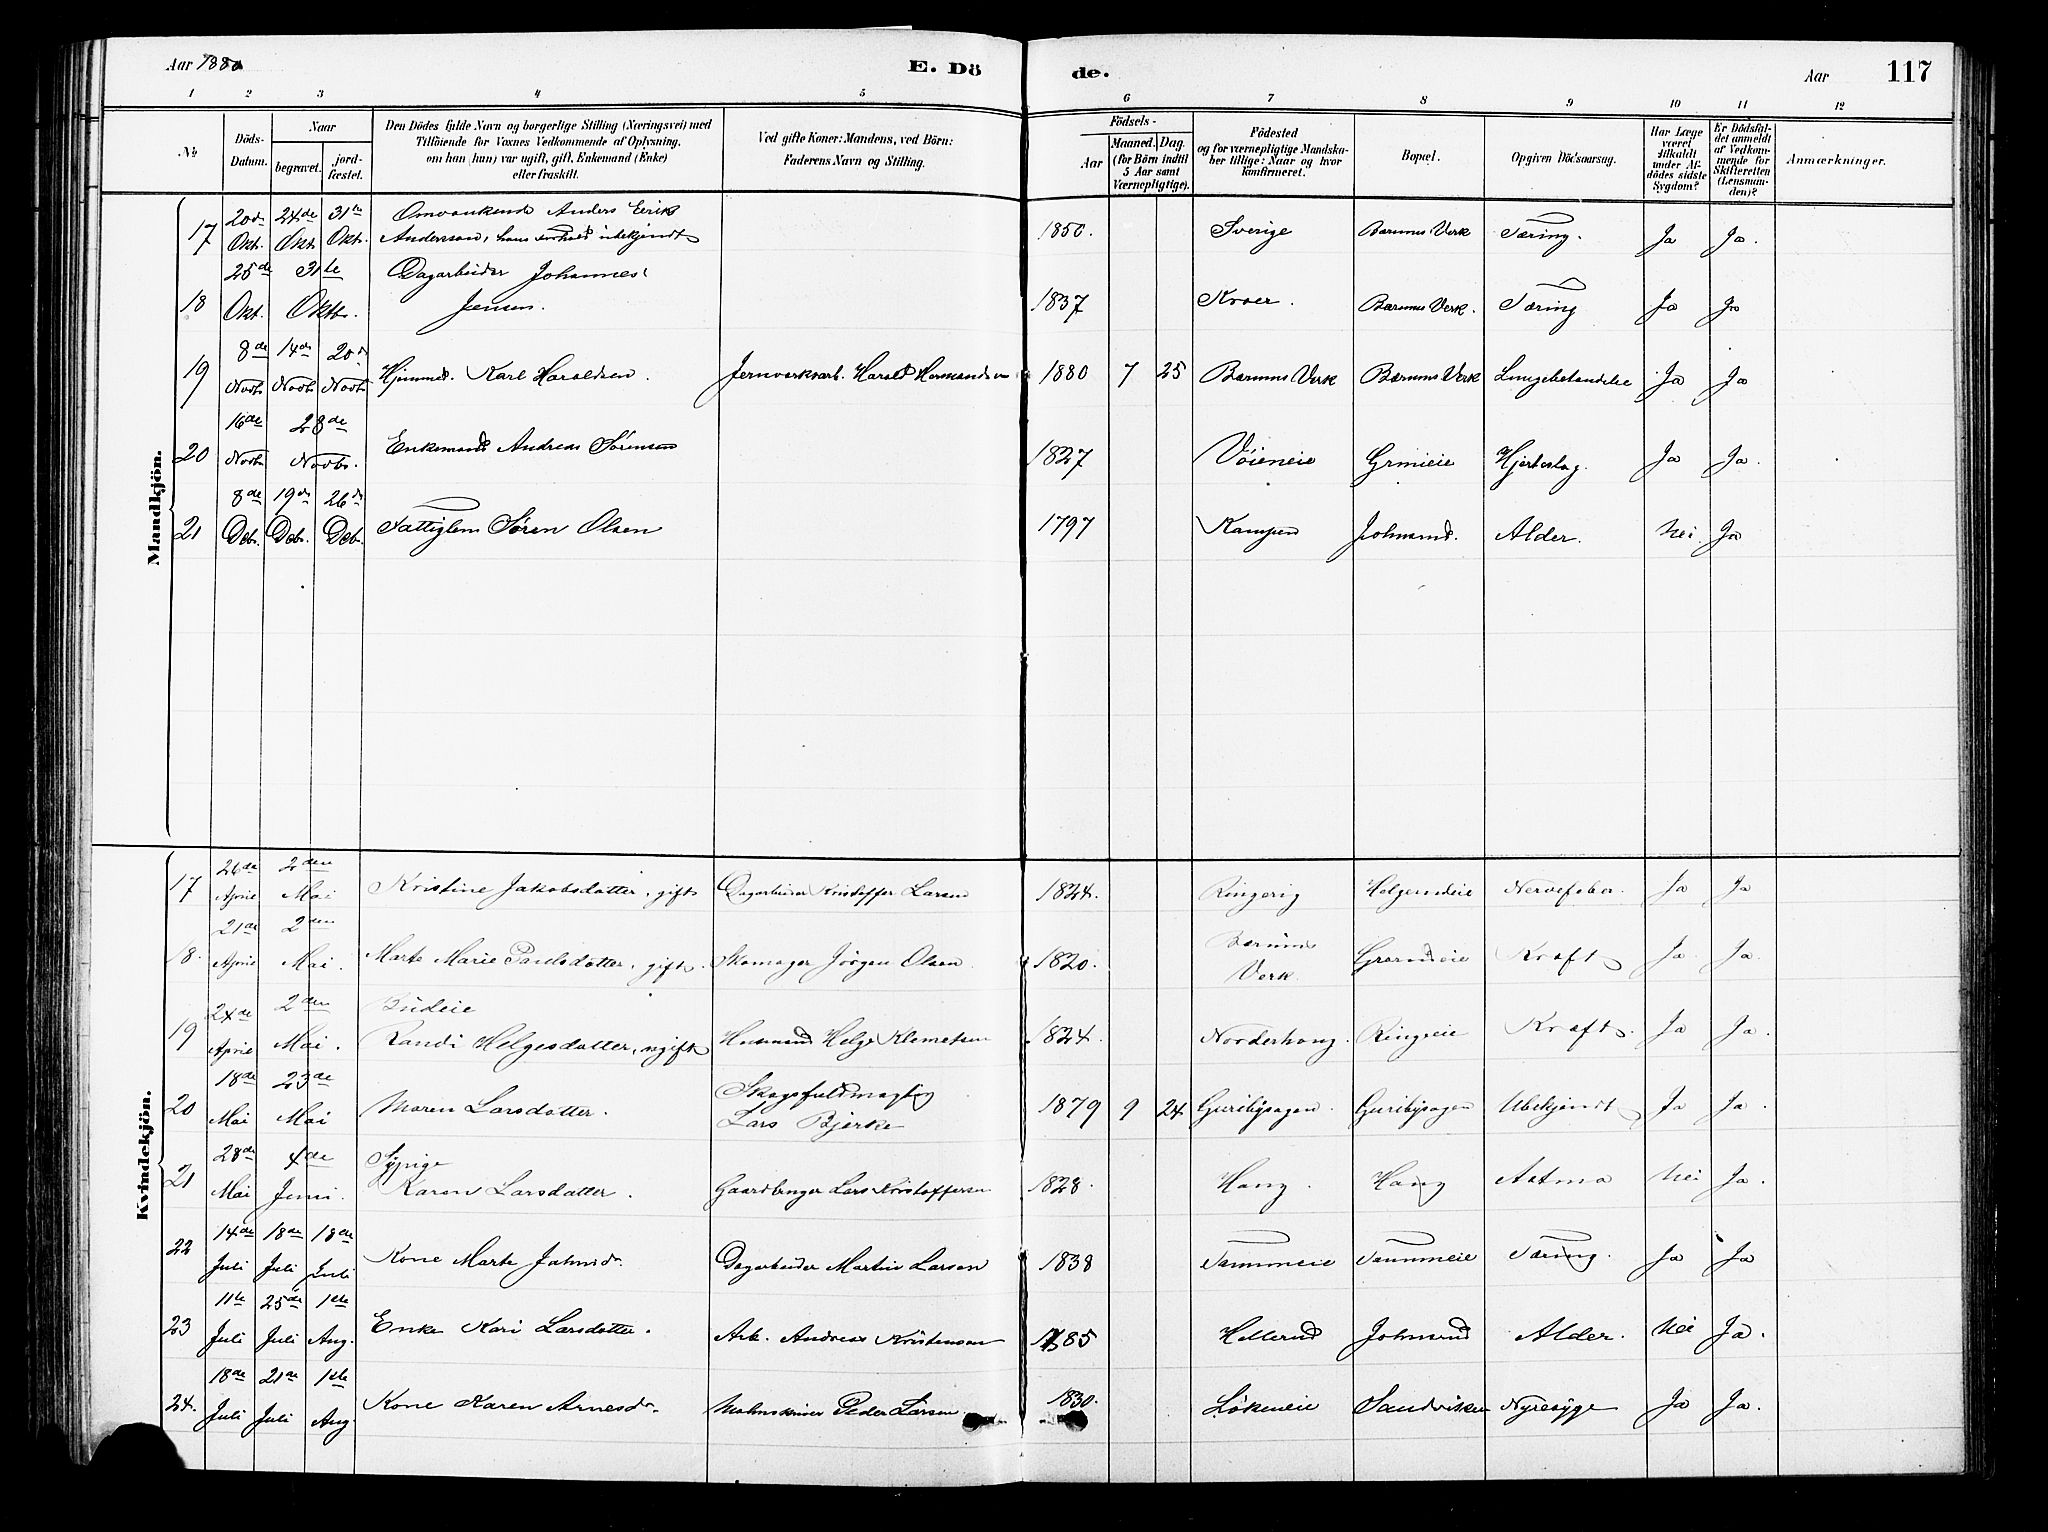 Aar 1880
E. Dö
de.
Aar
117
1 2 3 4 5 6 7 8 9 10 11 12
No
Döds-Datum.
Naar
begravet.
jord-fæstet.
Den Dödes fulde Navn og borgerlige Stilling (Næringsvei) med
Tilföiende for Voxnes Vedkommende af Oplysning,
om han (hun) var ugift, gift, Enkemand (Enke)
eller fraskilt.
Ved gifte Koner: Mandens, ved Börn:
Faderens Navn og Stilling.
Födsels-
Aar
Maaned. Dag.
(for Börn indtil
5 Aar samt
Værnepligtige).
Födested
og for værnepligtige Mandska-
ber tillige: Naar og hvor
konfirmeret.
Bopæl.
Opgiven Dödsaarsag.
Har Læge
været
tilkaldt
under Af-
dödes sidste
Sygdom?
Er Dödsfal-
det anmeldt
af Vedkom-
mende for
Skifteretten
(Lensman-
den)?
Anmærkninger.
Mandkjön.
17 20de Okt. 24de Okt. 31te Okt. Omvankende Anders Eerik
Andersson, hans forhold ubekjendt 1850. Sverige Bærums Verk Tæring. Ja Ja.
18 25de Okt. 31te Oktbr. Dagarbeider Johannes
Jensen. 1837 Kroer. Bærums Verk. Tæring Ja Ja
19 8de Novbr. 14de Novbr. 20de Novbr. Hjemmed. Karl Haraldsen. Jernverksarb. Harald Hermandsen 1880 7 25 Bærums Verk Bærums Verk Lungebetændelse Ja Ja
20 16de Novbr. 28de Novbr. Enkemand Andreas Sørensen 1827 Vöieneie Grinieie Hjerteslag. Ja Ja.
21 8de Debr. 19de Debr. 26de Debr. Fattiglem Søren Olsen 1797 Kampen Johnsrud. Alder. Nei. Ja
Kvindekjön.
17 26de April 2den Mai Kristine Jakobsdatter, gift Dagarbeider Kristoffer Larsen 1824. Ringerig Helgerudeie Nervefeber. Ja Ja
18. 21de April 2den Mai. Marte Marie Paulsdatter, gift. Skomager Jörgen Olsen 1820. Bærums
Verk. Kraft Ja. Ja.
19 24de April 2den Mai. Budeie
Randi Helgesdatter, ugift Husmand Helge Klemetsen 1824. Norderhong. Ringieie Kraft. Ja Ja.
20 18de Mai 23de Mai Maren Larsdatter. Skogsfuldmægtig
Lars Bjerke 1879 9 24. Guribysagen. Guribysagen Ubekjendt Ja Ja.
21 28de Mai 4de Juni. Sypige
Karen Larsdatter. Gaardbruger Lars Kristoffersen 1828. Haug. Haug Astma Nei Ja.
22 14de Juli 18de Juli 18de Juli Kone Marte Johnsd. Dagarbeider Martin Larsen 1838 Tæring. Ja Ja
23 11te Juli 25de Juli 1ste Aug. Enke Kari Larsdatter. Arb. Andreas Kristensen 1785 Hellerud Johnsrud Alder. Nei Ja.
24. 18de Juli 21de Juli 1ste Aug. Kone Karen Arnesdr. Peder Larsen 1830. Lökeneie Sandviken Nyresyge Ja Ja.